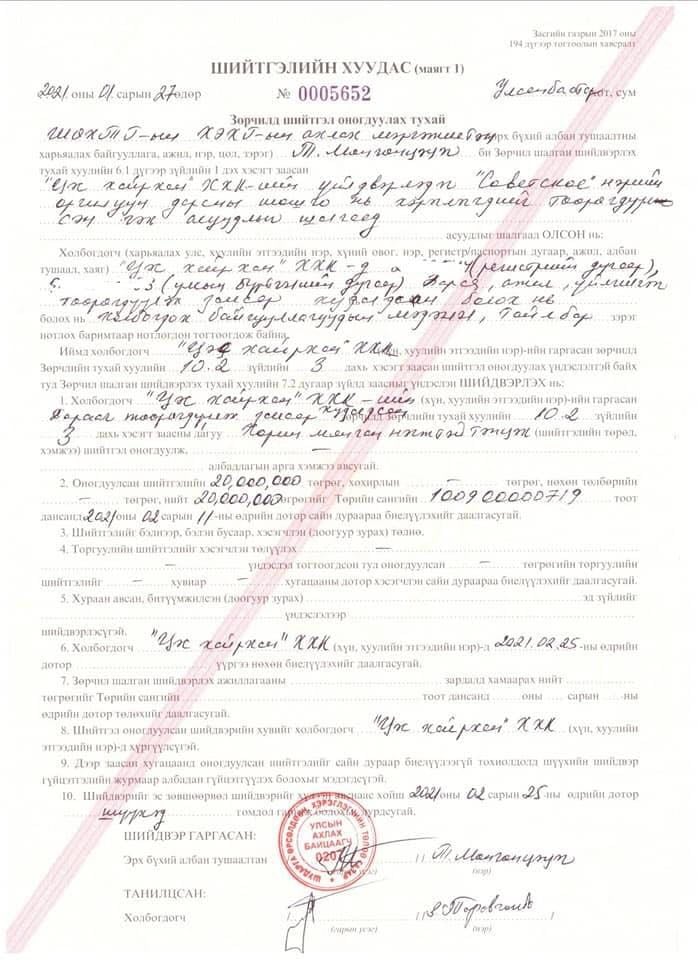 Засгийн газрын 2017 оны
194 дүгээр тогтоолын хавсралт
ШИЙТГЭЛИЙН ХУУДАС (маягт 1)
2021 оны 01 сарын 27 өдөр № 0005652 Улаанбаатар хот, сум
Зөрчилд шийтгэл оногдуулах тухай
ШӨХТГ-ын ХЭХГ-ын ахлах мэргэжилтэн эрх бүхий албан тушаалтны
харьяалах байгууллага, ажил, нэр, цол, зэрэг) Т. Мөнгөнцэцэг би Зөрчил шалган шийдвэрлэх
тухай хуулийн 6.1 дүгээр зүйлийн 1 дэх хэсэгт заасан
"Цэж хайрхан" ХХК-ийн үйлдвэрлэдэг "Советское" нэрийн
оргилуун дарсны шошго нь хэрэглэгчдийг төөрөгдүүл
сэн гэх асуудлыг шалгаад
асуудлыг шалгаад ОЛСОН нь:
Холбогдогч (харьяалах улс, хуулийн этгээдийн нэр, хүний овог. нэр, регистр/паспортын дугаар, ажил, албан
тушаал, хаяг) "Цэж хайрхан" ХХК-д (регистрийн дугаар),
3 (улсын бүртгэлийн дугаар) бараа, ажил, үйлчилгээг
төөрөгдүүлж замаар худалдсан болох нь
болох нь холбогдох байгууллагуудын мэдээлэл, тайлбар зэрэг
нотлох баримтаар нотлогдон тогтоогдож байна.
Иймд холбогдогч "Цэж хайрхан" ХХК (хүн, хуулийн этгээдийн нэр)-ийн гаргасан зөрчилд
Зөрчлийн тухай хуулийн 10.2 зүйлийн 3 дахь хэсэгт заасан шийтгэл оногдуулах үндэслэлтэй байх
тул Зөрчил шалган шийдвэрлэх тухай хуулийн 7.2 дугаар зүйлд заасныг үндэслэн ШИЙДВЭРЛЭХ нь:
1. Холбогдогч "Цэж хайрхан" ХХК-ийн (хүн, хуулийн этгээдийн нэр)-ийн гаргасан
барааг төөрөгдүүлж замаар худалдсан Зөрчилд Зөрчлийн тухай хуулийн 10.2 зүйлийн
3 дахь хэсэгт заасны дагуу Хорин мянган нэгжтэй тэнцэх (шийтгэлийн төрөл,
хэмжээ) шийтгэл оногдуулж, —
албадлагын арга хэмжээ авсугай.
2. Оногдуулсан шийтгэлийн 20,000,000 төгрөг, хохирлын — төгрөг, нөхөн төлбөрийн
— төгрөг, нийт 20,000,000 төгрөгийг Төрийн сангийн 100900000719 тоот
дансанд 2021 оны 02 сарын 11-ны өдрийн дотор сайн дураараа биелүүлэхийг даалгасугай.
3. Шийтгэлийн бэлнээр, бэлэн бусаар, хэсэгчлэн (доогуур зурах) төлнө.
4. Торгуулийн шийтгэлийг хэсэгчлэн төлүүлэх —
— үндэслэл тогтоогдсон тул оногдуулсан — төгрөгийн торгуулийн
шийтгэлийг — хувиар — хугацааны дотор хэсэгчлэн сайн дураараа биелүүлэхийг даалгасугай.
5. Хураан авсан, битүүмжилсэн (доогуур зурах) эд зүйлийг
үндэслэлээр
шийдвэрлэсүгэй.
6. Холбогдогч "Цэж хайрхан" ХХК (хүн, хуулийн этгээдийн нэр)-д 2021.02.25-ны өдрийн
дотор үүргээ нөхөн биелүүлэхийг даалгасугай.
7. Зөрчил шалган шийдвэрлэх ажиллагааны зардалд хамаарах нийт
төгрөгийг Төрийн сангийн тоот дансанд оны сарын -ны
өдрийн дотор төлөхийг даалгасугай.
8. Шийтгэл оногдуулсан шийдвэрийн хувийг холбогдогч "Цэж хайрхан" ХХК (хүн, хуулийн
этгээдийн нэр)-д хүргүүлсүгэй.
9. Дээр заасан хугацаанд оногдуулсан шийтгэлийг сайн дураар биелүүлээгүй тохиолдолд шүүхийн шийдвэр
гүйцэтгэлийн журмаар албадан гүйцэтгүүлэх болохыг мэдэгдсүгэй.
10. Шийдвэрийг эс зөвшөөрвөл шийдвэрийг хүлээн авснаас хойш 2021 оны 02 сарын 25-ны өдрийн дотор
шүүхэд гомдол гаргаж болохыг дурдсугай.
ШИЙДВЭР ГАРГАСАН:
Эрх бүхий албан тушаалтан / / Т. Мөнгөнцэцэг
(нэр)
УЛСЫН
АХЛАХ
БАЙЦААГЧ
0207
ТАНИЛЦСАН:
Холбогдогч / /
(гарын үсэг) (нэр)